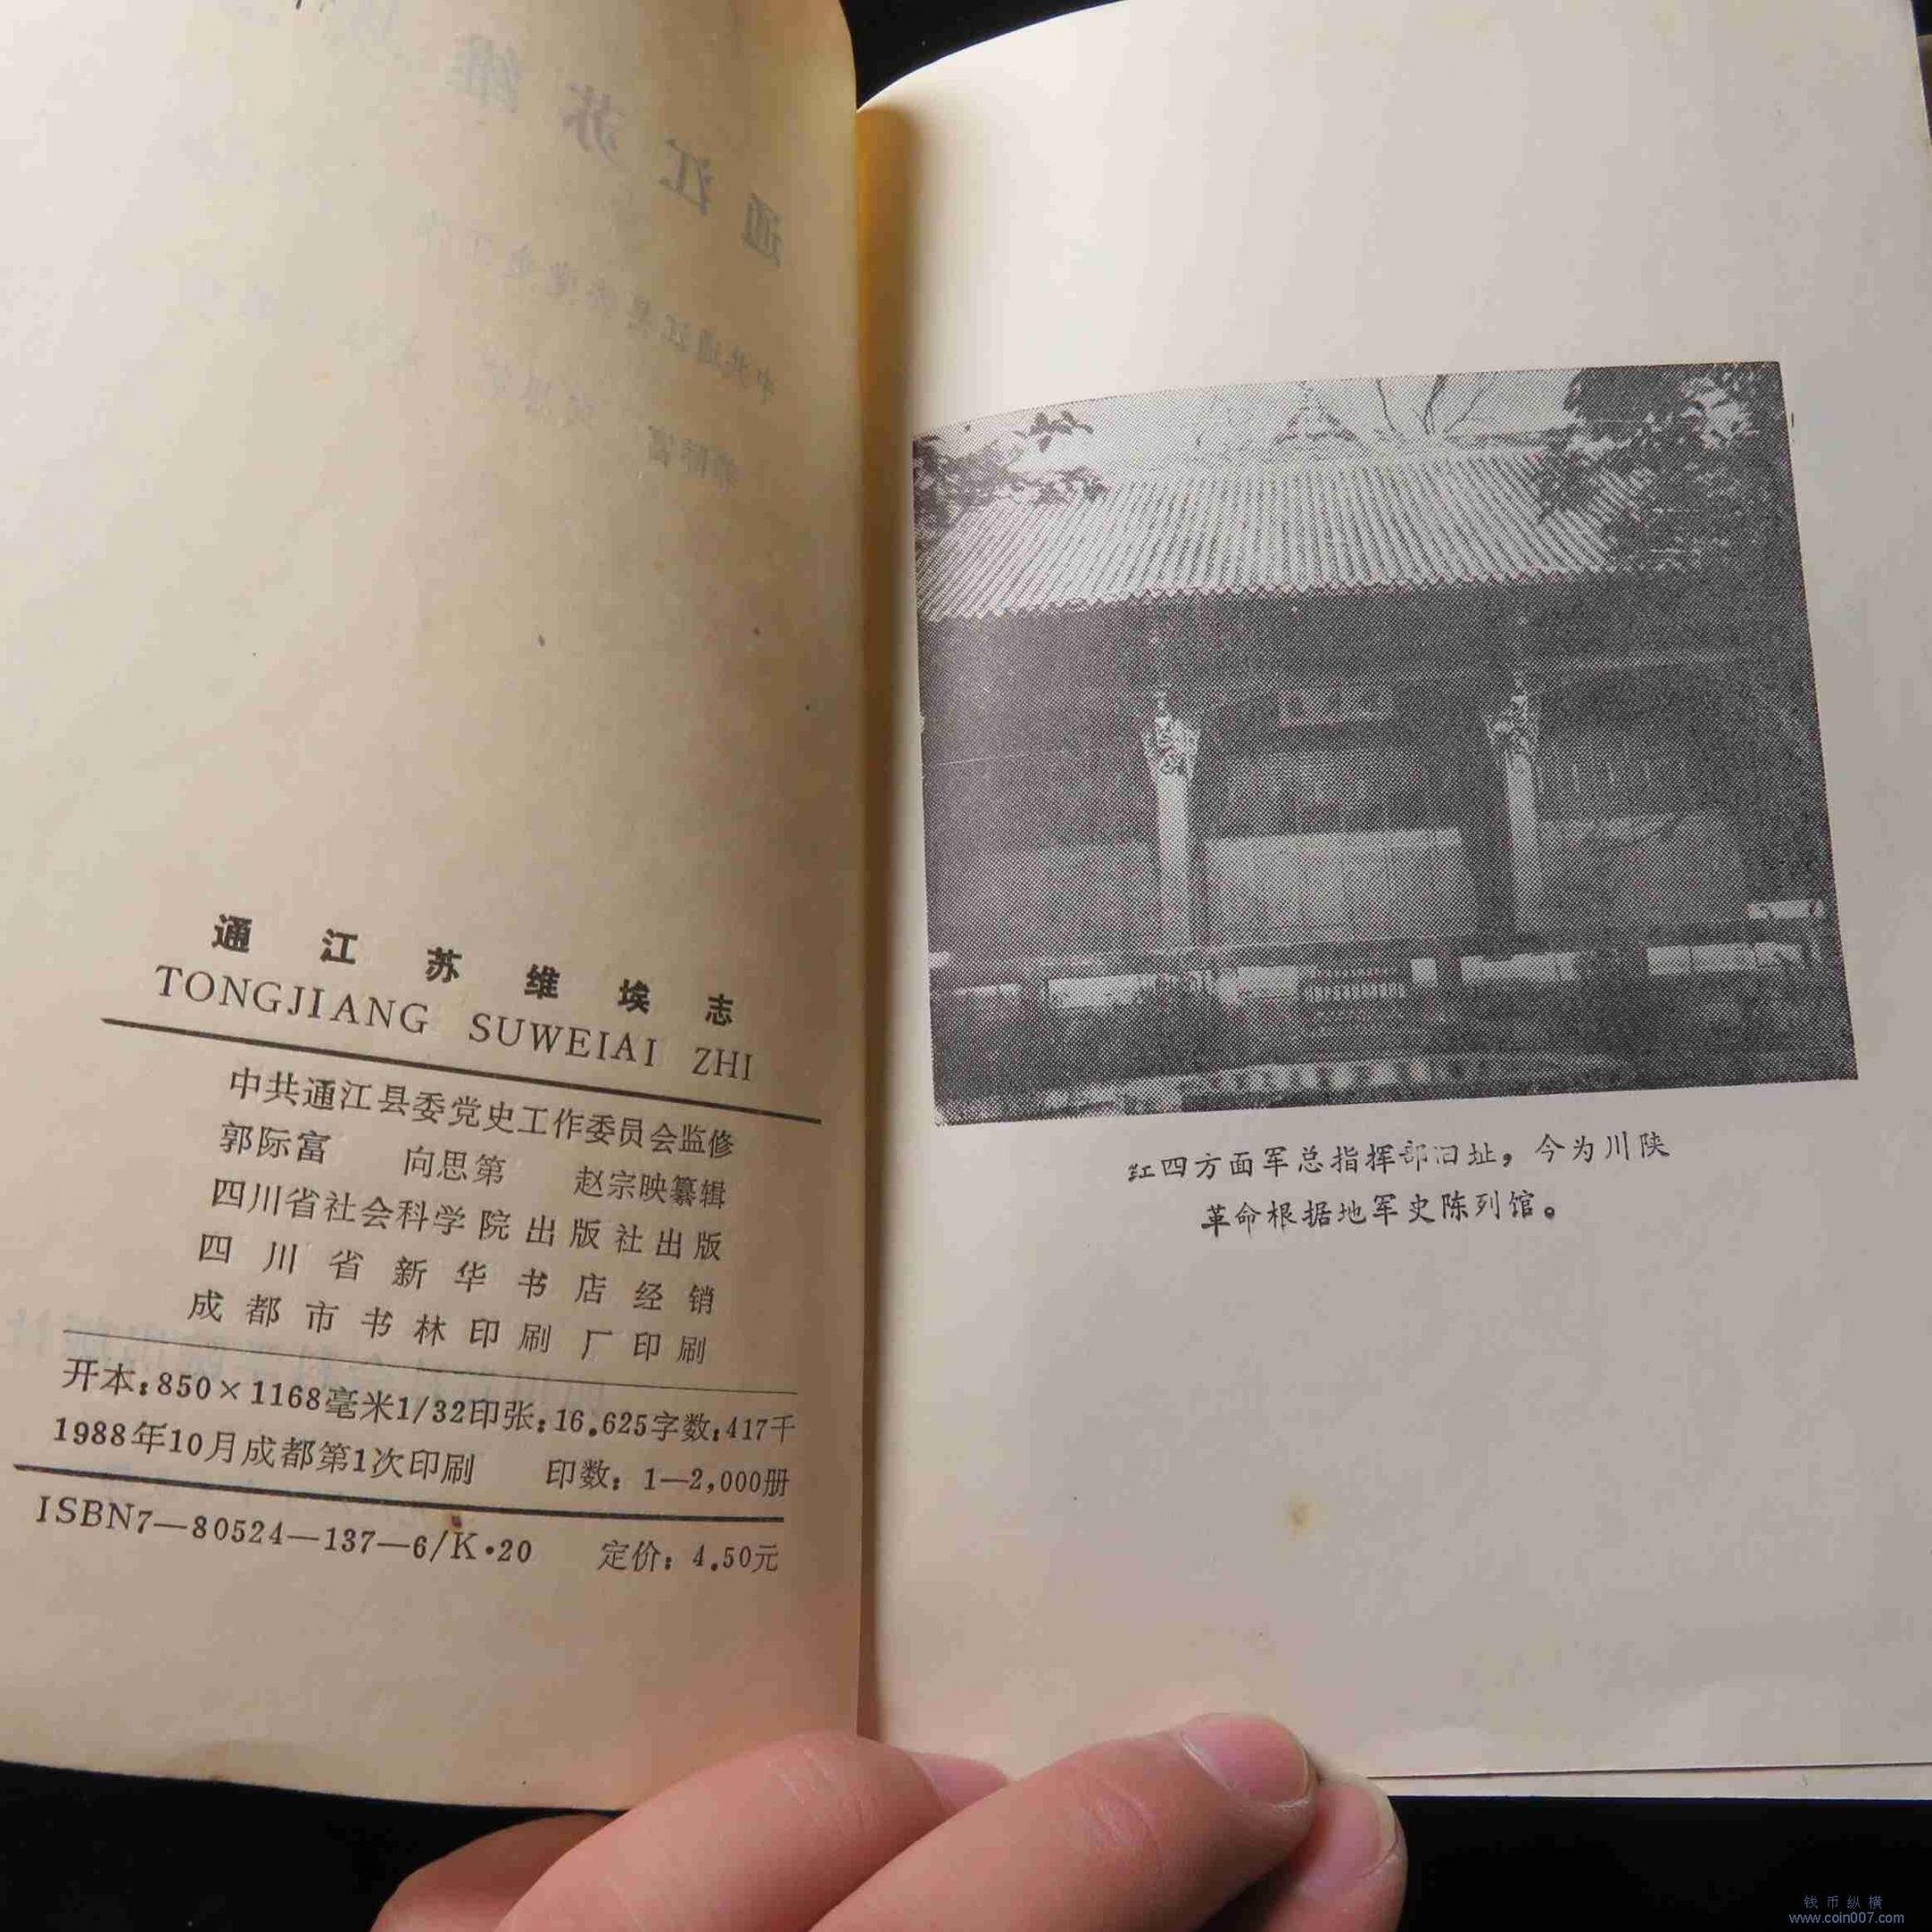 通江苏维埃志
TONGJIANG SUWEIAI ZHI
中共通江县委党史工作委员会监修
郭际富 向思第 赵宗映纂辑
四川省社会科学院出版社出版
四川省新华书店经销
成都市书林印刷厂印刷
开本:850×1168毫米1/32印张:16.625字数:417千
1988年10月成都第1次印刷 印数:1—2,000册
ISBN7—80524—137—6/K·20 定价:4.50元
红四方面军总指挥部旧址,今为川陕
革命根据地军史陈列馆。
钱币纵横
www.coin007.com